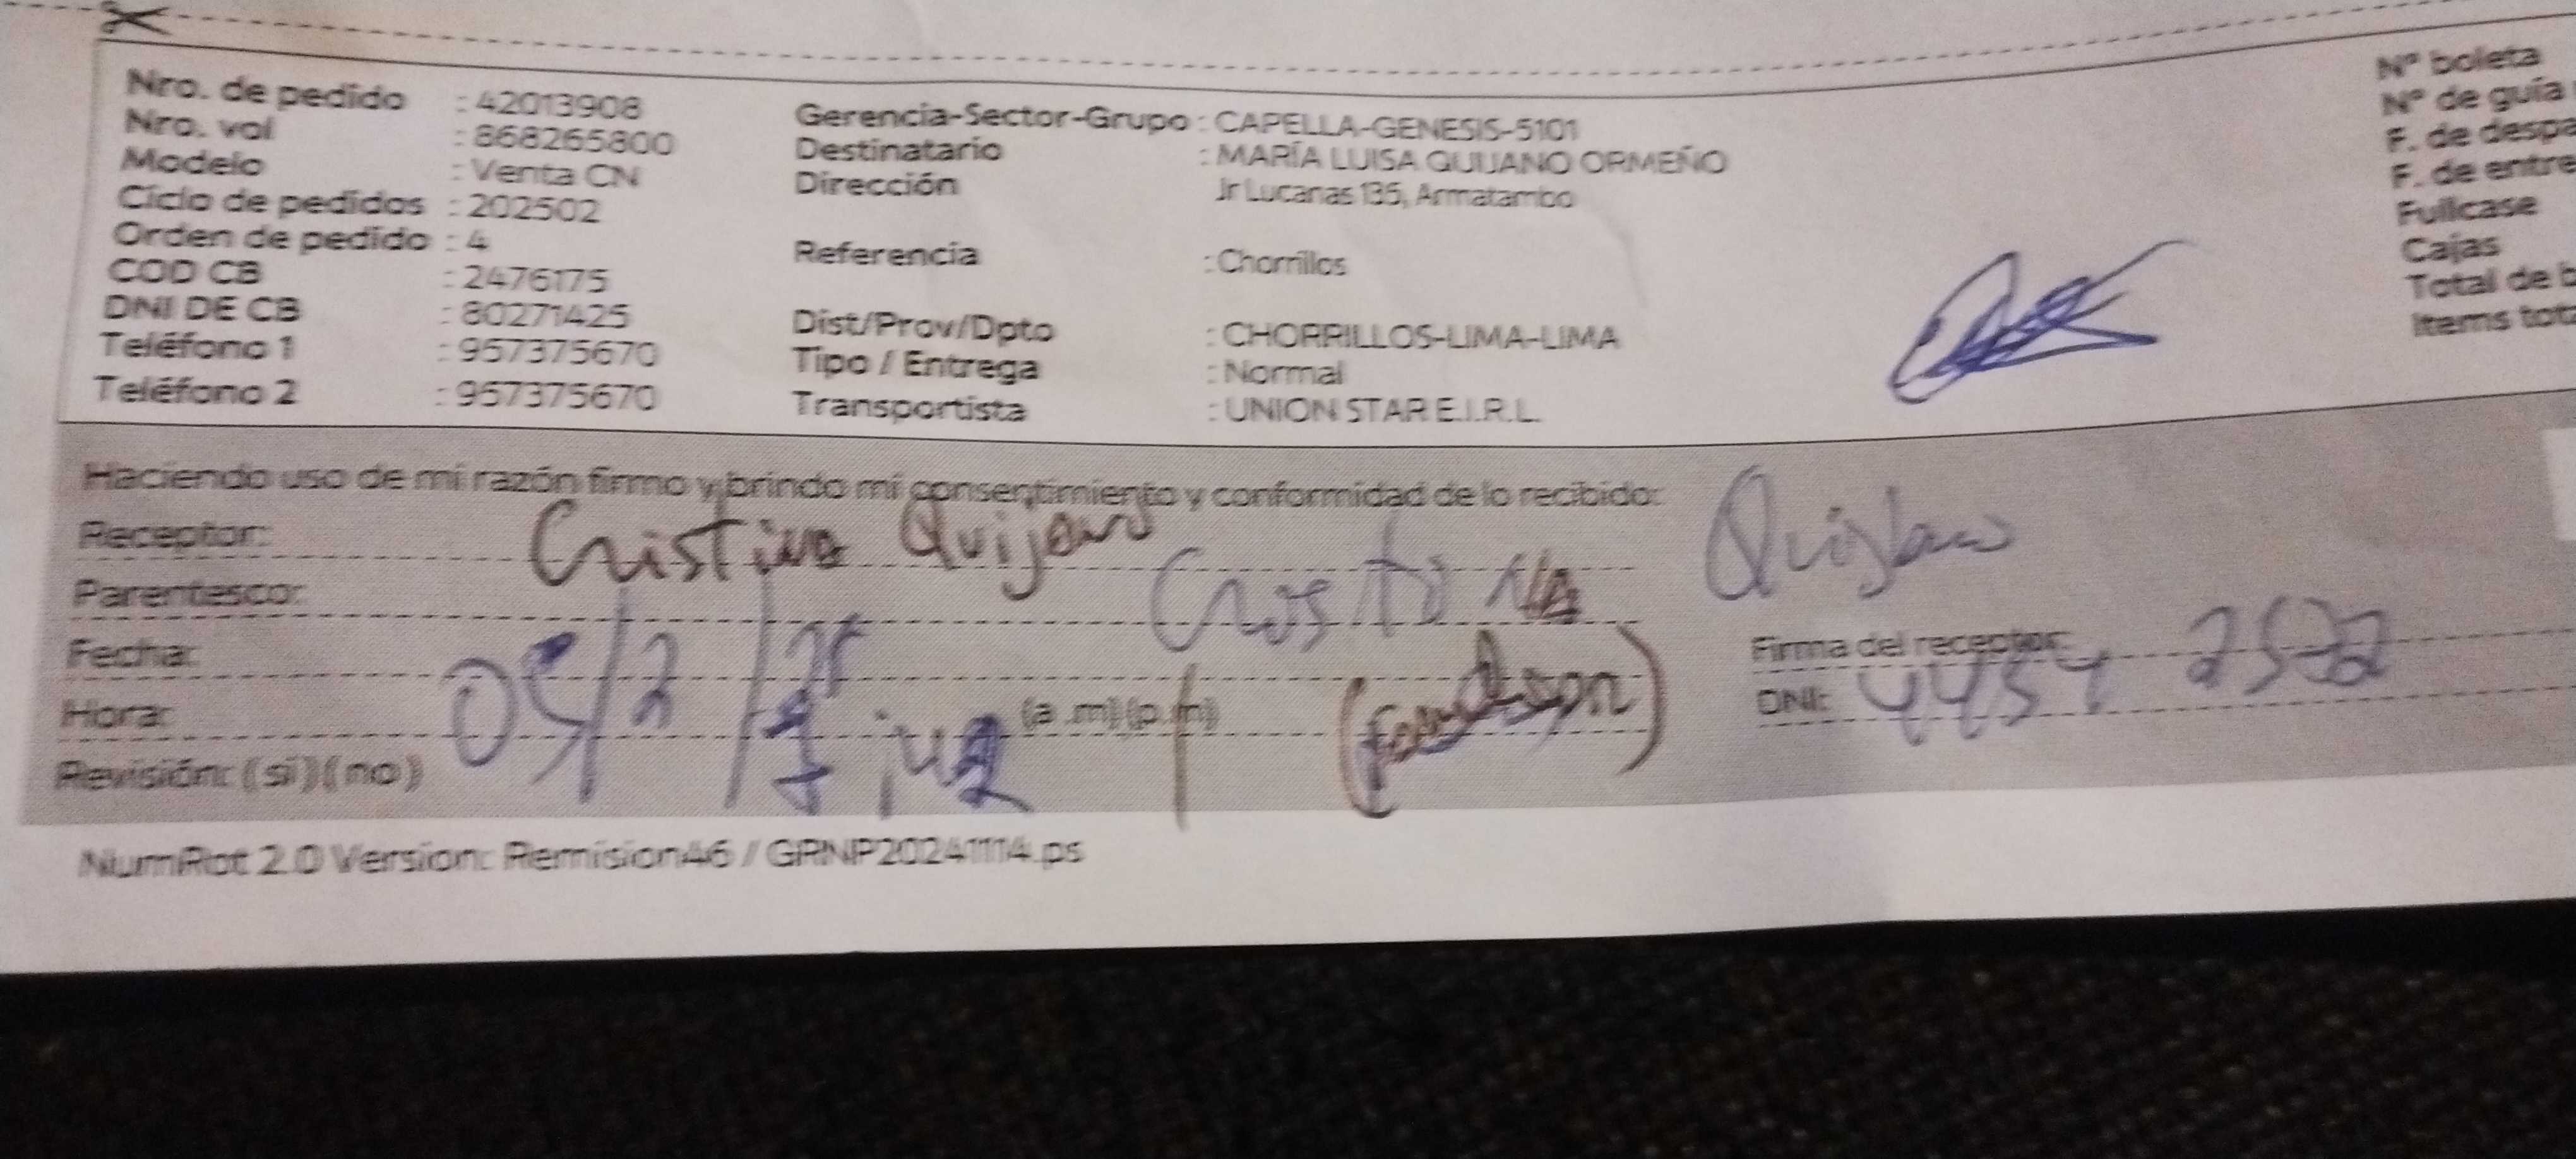 Nro. de pedido : 42013908
Nro. val : 868265800
Modelo : Venta CN
Ciclo de pedidos : 202502
Orden de pedido : 4
COD CB : 2476175
DNI DE CB : 80271425
Teléfono 1 : 957375670
Teléfono 2 : 957375670
Gerencia-Sector-Grupo : CAPELLA-GENESIS-5101
Destinatario : MARÍA LUISA QUIJANO ORMEÑO
Dirección Jr Lucanas 135, Armatambo
Referencia : Chorrillos
Dist/Prov/Dpto : CHORRILLOS-LIMA-LIMA
Tipo / Entrega : Normal
Transportista : UNION STAR E.I.R.L.
N° boleta
N° de guía
F. de despa
F. de entre
Fullcase
Cajas
Total de b
Items tot
Haciendo uso de mi razón firmo y brindo mi consentimiento y conformidad de lo recibido:
Receptor: Cristina Quijano
Parentesco: Cristina Quijano
Fecha: 05/2/25
Hora: (a .m)(p.m)
Revisión: (si)(no)
Firma del receptor:
DNI: 4457
NumRot 2.0 Version: Remision46 / GRNP20241114.ps